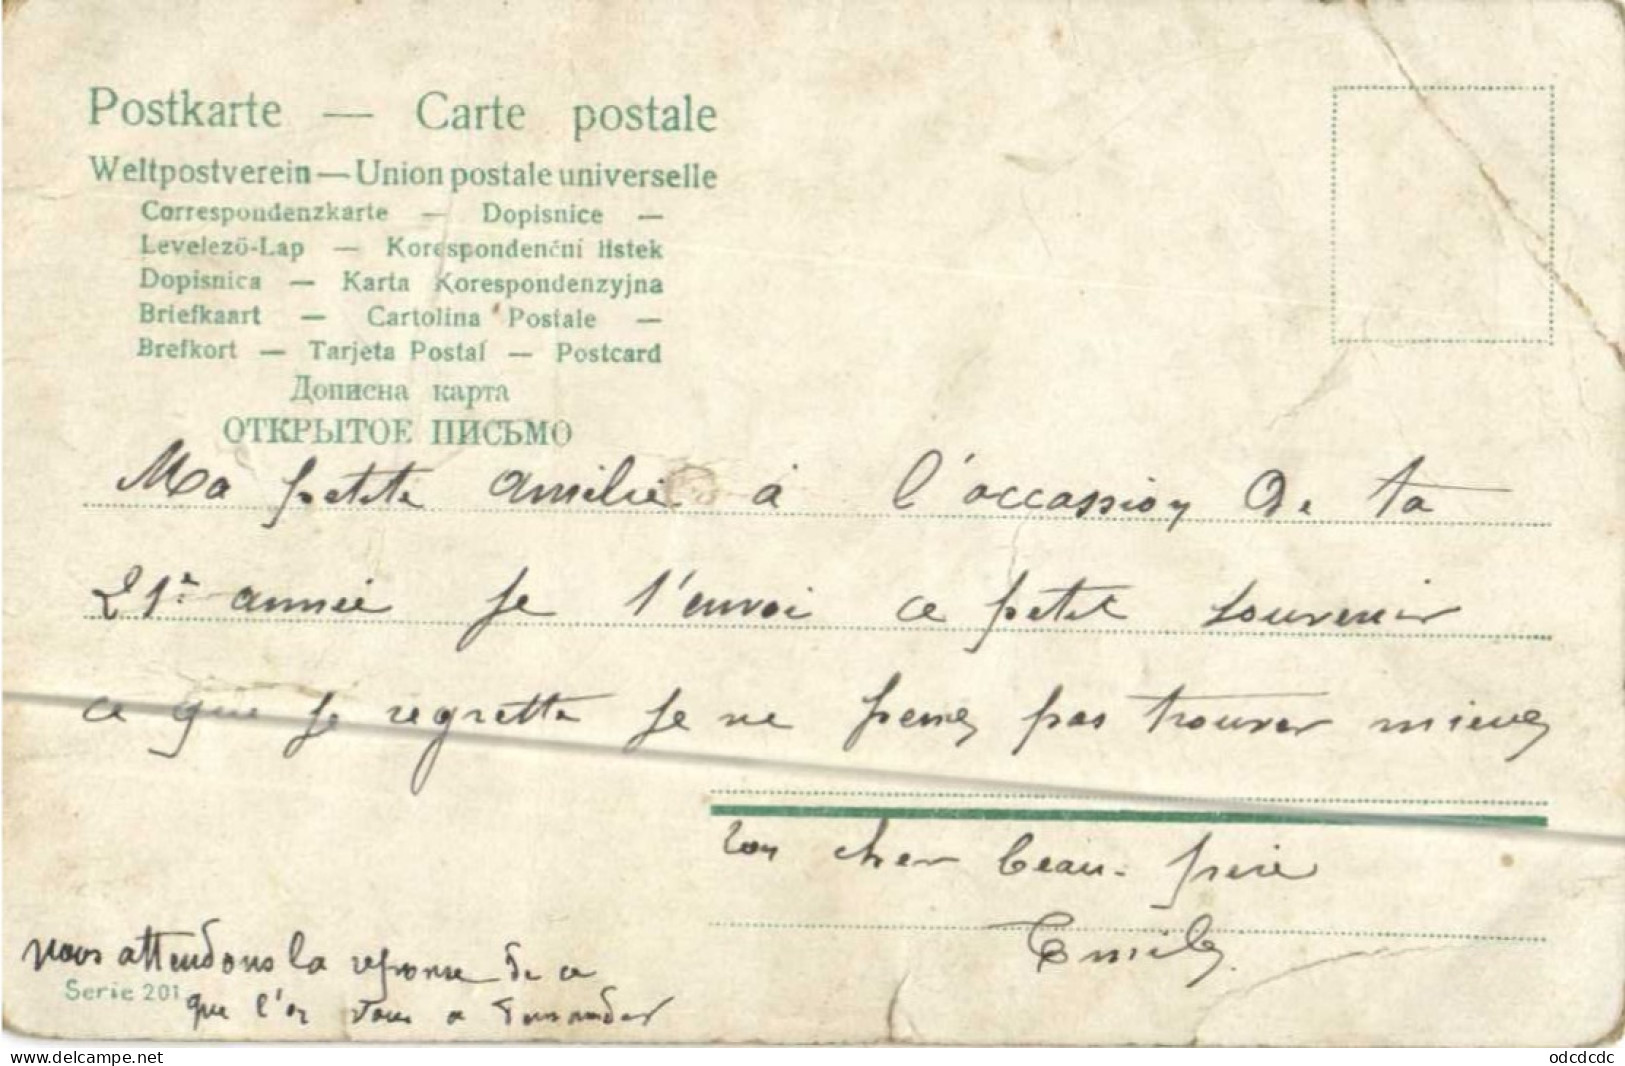 Postkarte — Carte postale
Weltpostverein — Union postale universelle
Correspondenzkarte — Dopisnice —
Levelező-Lap — Korespondenční lístek
Dopisnica — Karta Korespondenzyjna
Briefkaart — Cartolina Postale —
Brefkort — Tarjeta Postal — Postcard
Дописна карта
ОТКРЫТОЕ ПИСЬМО
Ma petite Amilie à l'occassion de ta
21e année je t'envoi ce petit souvenir
ce que je regrette je ne peux pas trouver mieux
ton cher beau-frère
Emile
nous attendons la reponse de ce
Serie 201
que l'on vous a demander
www.delcampe.net
odcdcdc